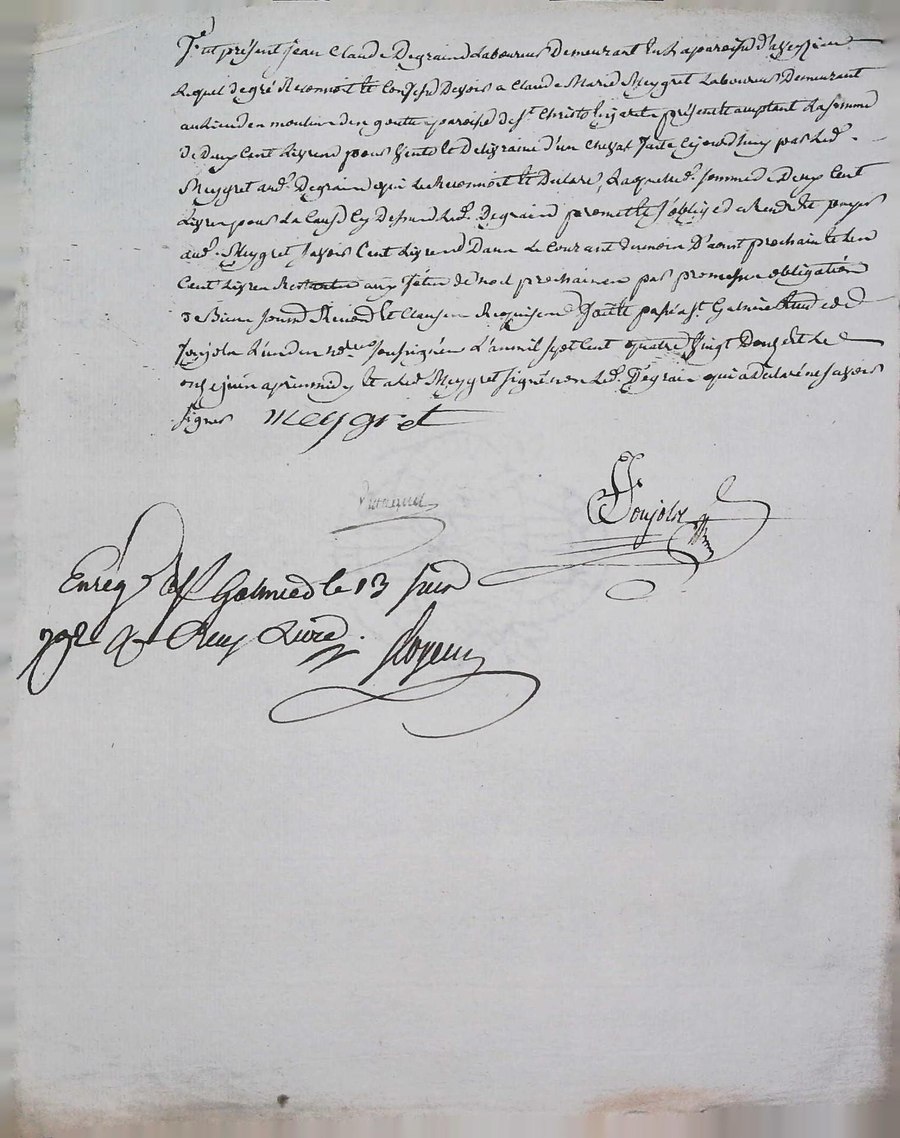 fut présent jean Claude Degrain Laboureur Demeurant en la paroisse d'aveyzieu
Lequel de gré Reconnoit et Confesse Devoir a Claude Marie Meygret Laboureur Demeurant
au Lieu du moulin des goutte paroisse de St. Christo présent et acceptant La somme
de Deux Cent Livres pour Vente et Delivraison d'un Cheval faite Cejourdhuy par Led.
Meygret aud. Degrain qui Le Reconnoit et Declare, Laquelle somme de Deux Cent
Livres pour La Cause Cy Dessus Led. Degrain promet et s'oblige de Rendre et payer
aud. Meygret savoir Cent Livres Dans Le Courant du mois D'aout prochain et Les
Cent Livres Restantes aux fêtes de noel prochaines par promesse obligation
de Biens soumis Renond. et Clauses Requises fait et passé a St. Galmier Etude de
Joujolx L'un des nores soussignés L'an mil sept Cent quatre Vingt Douze et Le
onze juin apres midy et a Led. Meygret signé non Led. Degrain qui a Déclaré ne savoir
signer meygret
Joujolx
Enregé a St Galmier le 13 juin
1792 Rec